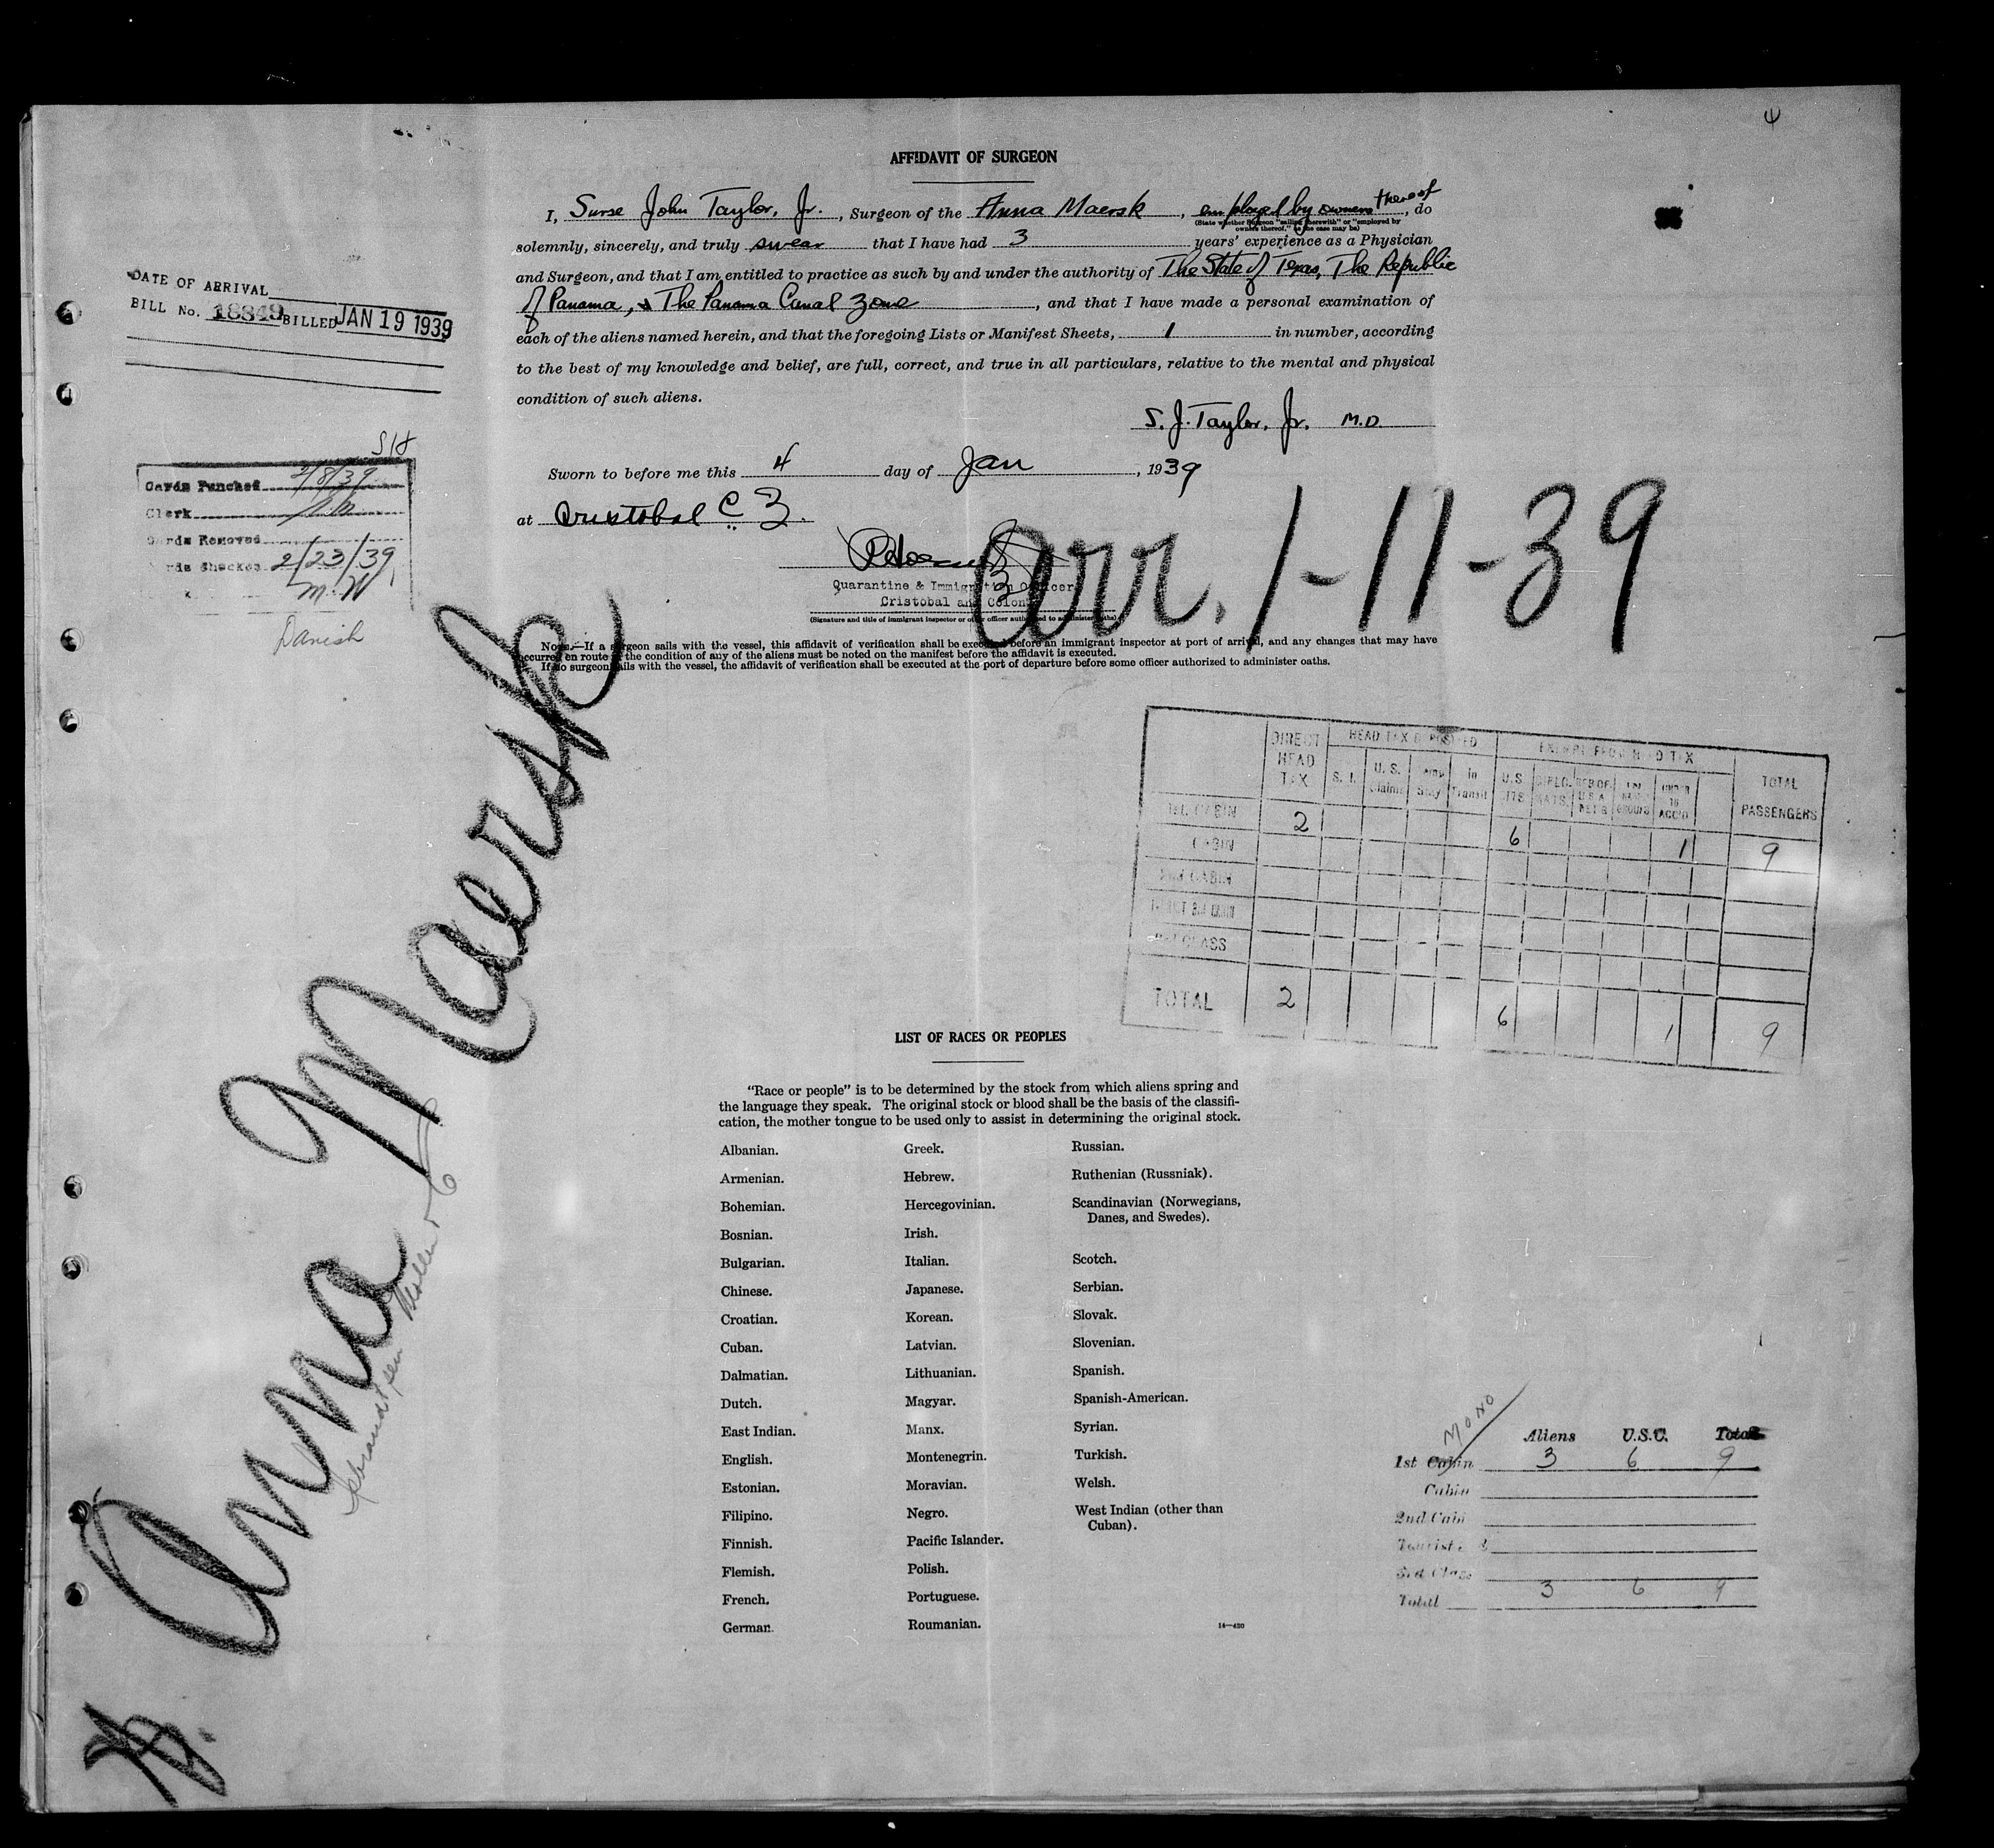 AFFIDAVIT OF SURGEON
I, Surse John Taylor, Jr., Surgeon of the Anna Maersk, employed by owners thereof, do
(State whether Surgeon "sailing therewith" or "employed by
owners thereof," as the case may be)
solemnly, sincerely, and truly swear that I have had 3 years' experience as a Physician
and Surgeon, and that I am entitled to practice as such by and under the authority of The State of Texas, The Republic
of Panama, & The Panama Canal Zone, and that I have made a personal examination of
each of the aliens named herein, and that the foregoing Lists or Manifest Sheets, 1 in number, according
to the best of my knowledge and belief, are full, correct, and true in all particulars, relative to the mental and physical
condition of such aliens.
S. J. Taylor, Jr. M.D.
Sworn to before me this 4 day of Jan, 1939
at Cristobal C Z.
Quarantine & Immigration Officer
Cristobal and Colon
(Signature and title of immigrant inspector or other officer authorized to administer oaths)
Arr. 1-11-39
NOTE.—If a surgeon sails with the vessel, this affidavit of verification shall be executed before an immigrant inspector at port of arrival, and any changes that may have
occurred en route in the condition of any of the aliens must be noted on the manifest before the affidavit is executed.
If no surgeon sails with the vessel, the affidavit of verification shall be executed at the port of departure before some officer authorized to administer oaths.
DATE OF ARRIVAL
BILL No. 18849 BILLED JAN 19 1939
Cards Punched 2/8/39
Clerk
Cards Removed
Cards Checked 2/23/39
M.W
Danish
Anna Maersk
DIRECT HEAD TAX
HEAD TAX DEPOSITED
EXEMPT FROM HEAD TAX
TOTAL PASSENGERS
S. I. U. S. Claims Temp Stay In Transit U.S. CITS DIPLOMATS
1st CABIN 2 6 1 9
CABIN
2nd CABIN
3rd CLASS
TOTAL 2 6 1 9
LIST OF RACES OR PEOPLES
"Race or people" is to be determined by the stock from which aliens spring and
the language they speak. The original stock or blood shall be the basis of the classifi-
cation, the mother tongue to be used only to assist in determining the original stock.
Albanian.
Armenian.
Bohemian.
Bosnian.
Bulgarian.
Chinese.
Croatian.
Cuban.
Dalmatian.
Dutch.
East Indian.
English.
Estonian.
Filipino.
Finnish.
Flemish.
French.
German.
Greek.
Hebrew.
Hercegovinian.
Irish.
Italian.
Japanese.
Korean.
Latvian.
Lithuanian.
Magyar.
Manx.
Montenegrin.
Moravian.
Negro.
Pacific Islander.
Polish.
Portuguese.
Roumanian.
Russian.
Ruthenian (Russniak).
Scandinavian (Norwegians,
Danes, and Swedes).
Scotch.
Serbian.
Slovak.
Slovenian.
Spanish.
Spanish-American.
Syrian.
Turkish.
Welsh.
West Indian (other than
Cuban).
14—420
MONO
Aliens U.S.C. Total
1st Cabin 3 6 9
Cabin
2nd Cabin
3rd Class
Total 3 6 9